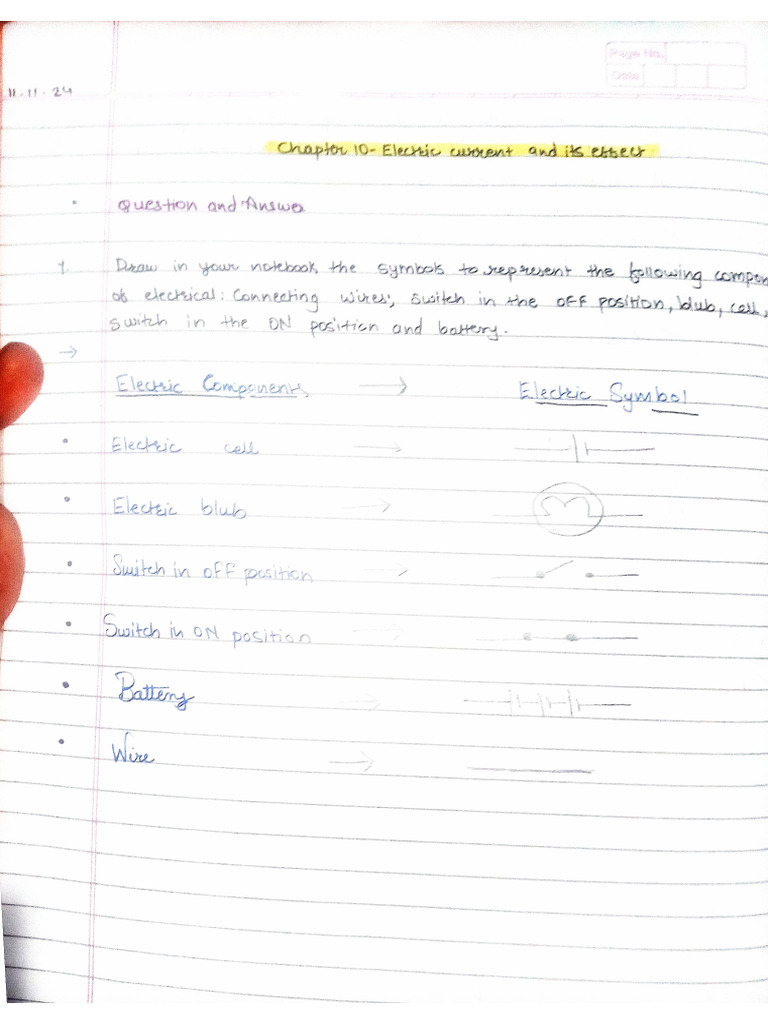 Page No.
Date
11-11-24
Chapter 10- Electric current and its effect
• Question and Answer
1. Draw in your notebook the symbols to represent the following compon
of electrical: Connecting wires, switch in the OFF position, blub, cell,
switch in the ON position and battery.
→
Electric Components → Electric Symbol
• Electric cell →
• Electric blub →
• Switch in OFF position →
• Switch in ON position →
• Battery →
• Wire →